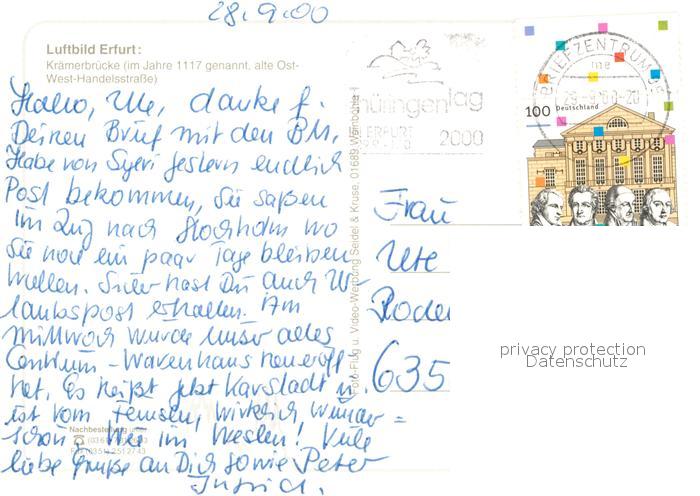 28.9.00
Luftbild Erfurt:
Krämerbrücke (im Jahre 1117 genannt, alte Ost-
West-Handelsstraße)
Hallo, Ute, danke f.
Deinen Brief mit den BM,
Habe von Syevi gestern endlich
Post bekommen, sie saßen
im Zug nach Stockholm wo
sie noch ein paar Tage bleiben
wollen. Sicher hast Du auch Ur-
laubspost erhalten. Am
Mittwoch wurde unser altes
Centrum-Warenhaus neu eröff
net. Es heißt jetzt Karstadt u.
ist vom Feinsten, wirklich wunder=
schön, wie im Westen! Viele
liebe Grüße an Dich sowie Peter
Ingrid.
Nachbestellung unter
Foto-Flug u. Video-Werbung Seidel & Kruse, 01689 Weinböhla
Thüringentag
ERFURT
2000
BRIEFZENTRUM
me
29.9.00-20
100 Deutschland
Frau
Ute
Rode
635
privacy protection
Datenschutz